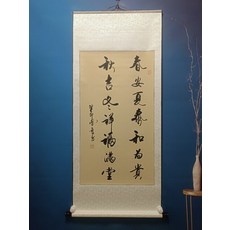 春安夏泰和为貴
秋吉冬祥福满堂